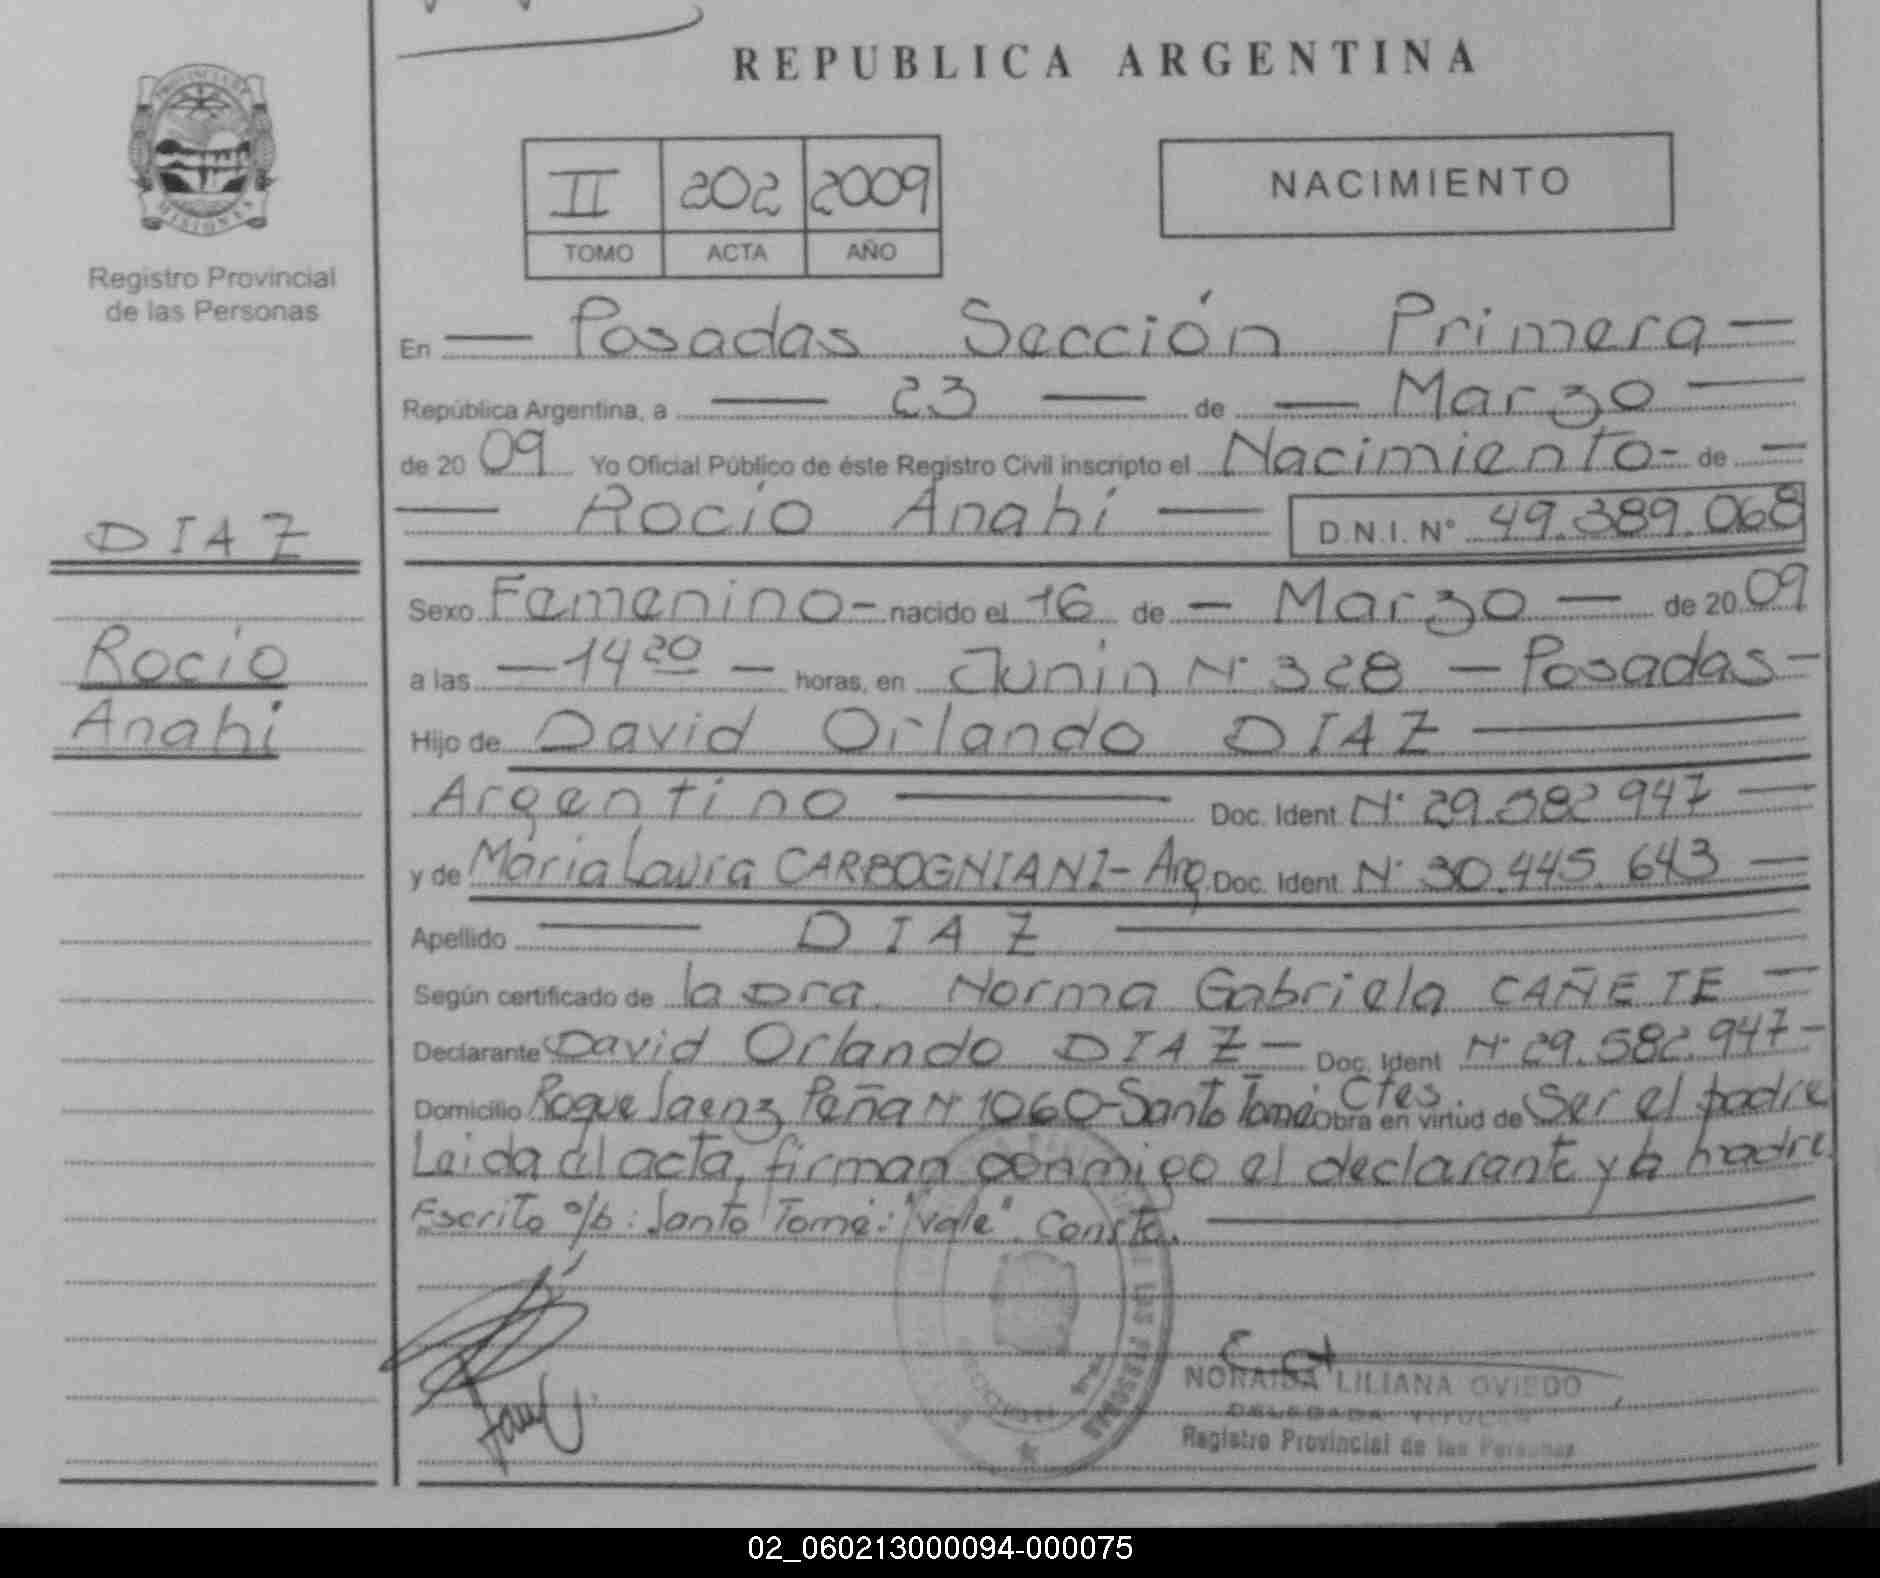 REPUBLICA ARGENTINA
PROVINCIA DE
MISIONES
Registro Provincial
de las Personas
II 202 2009
TOMO ACTA AÑO
NACIMIENTO
En — Posadas Sección Primera —
República Argentina, a — 23 — de — Marzo —
de 2009 Yo Oficial Público de éste Registro Civil inscripto el Nacimiento - de —
— Rocio Anahi — D.N.I. Nº 49.389.068
DIAZ
Rocio
Anahi
Sexo Femenino - nacido el 16 de — Marzo — de 2009
a las — 14 20 — horas, en Junin Nº 328 — Posadas —
Hijo de David Orlando DIAZ —
Argentino — Doc. Ident Nº 29.582.947 —
y de Maria Laura CARBOGNIANI - Arg. Doc. Ident Nº 30.445.643 —
Apellido — DIAZ —
Según certificado de la Dra. Norma Gabriela CAÑETE —
Declarante David Orlando DIAZ — Doc. Ident Nº 29.582.947 -
Domicilio Roque Saenz Peña Nº 1060 - Santo Tomé Ctes. Obra en virtud de Ser el padre
Leida el acta, firman conmigo el declarante y la madre.
Escrito s/b: Santo Tomé: "Vale". Conste. —
NORAIDA LILIANA OVIEDO
DELEGADA TITULAR
Registro Provincial de las Personas
02_060213000094-000075